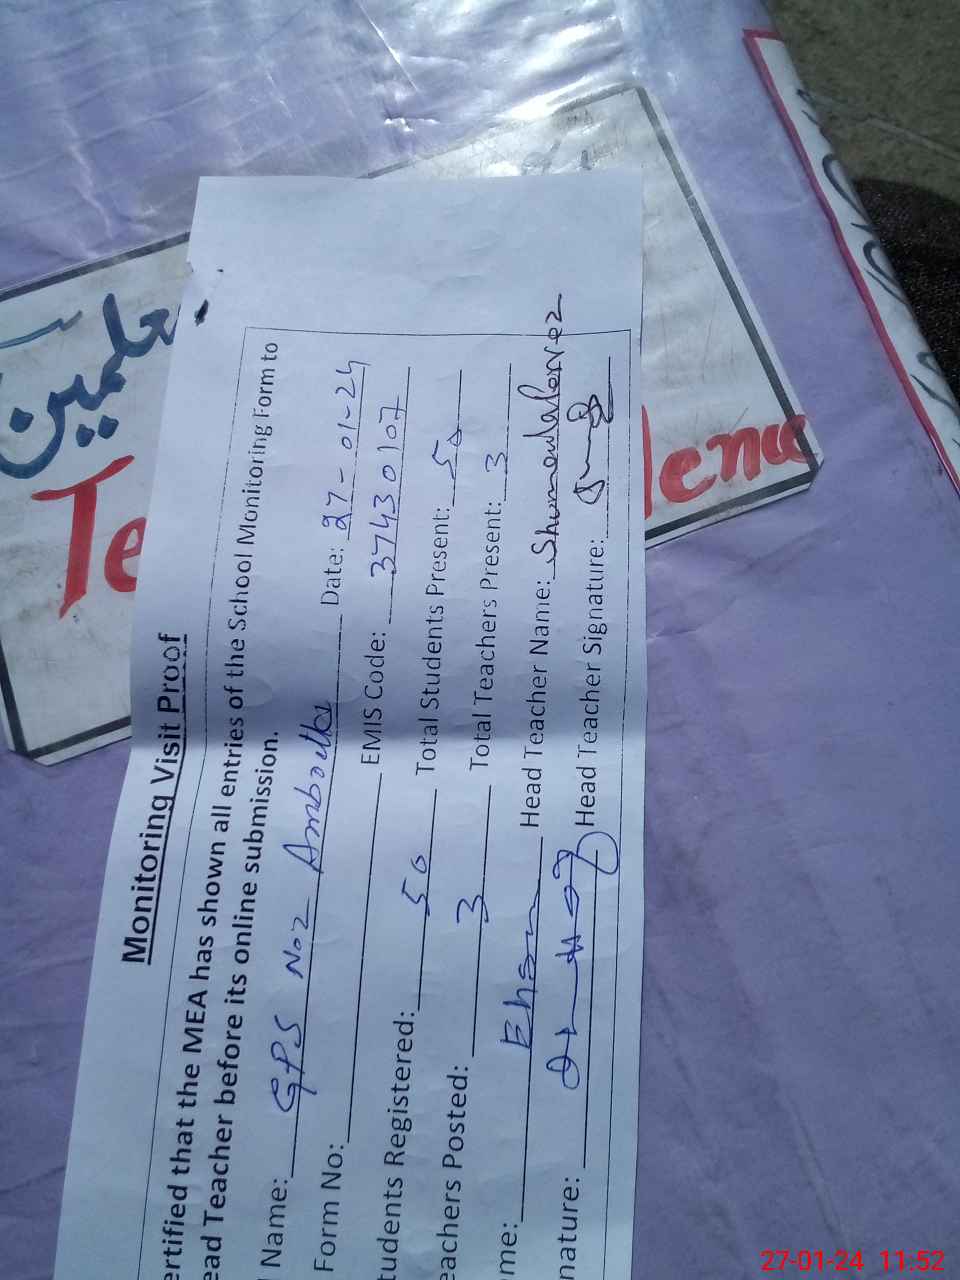 Monitoring Visit Proof
ertified that the MEA has shown all entries of the School Monitoring Form to
ead Teacher before its online submission.
Name: GPS No2 Date: 27-01-24
Form No: EMIS Code: 37430107
tudents Registered: 50 Total Students Present: 50
eachers Posted: 3 Total Teachers Present: 3
me: Head Teacher Name:
nature: Head Teacher Signature:
علمین
Te
27-01-24 11:52